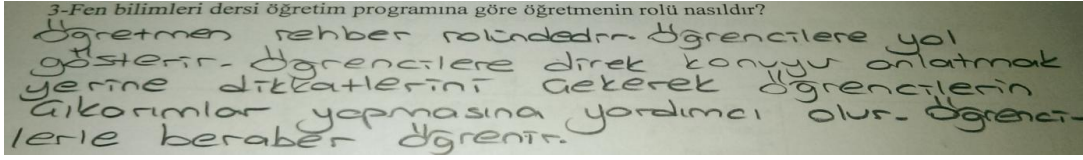 3-Fen bilimleri dersi öğretim programına göre öğretmenin rolü nasıldır?
Öğretmen rehber rolündedir. Öğrencilere yol
gösterir. Öğrencilere direk konuyu anlatmak
yerine dikkatlerini çekerek öğrencilerin
çıkarımlar yapmasına yardımcı olur. Öğrenci-
lerle beraber öğrenir.